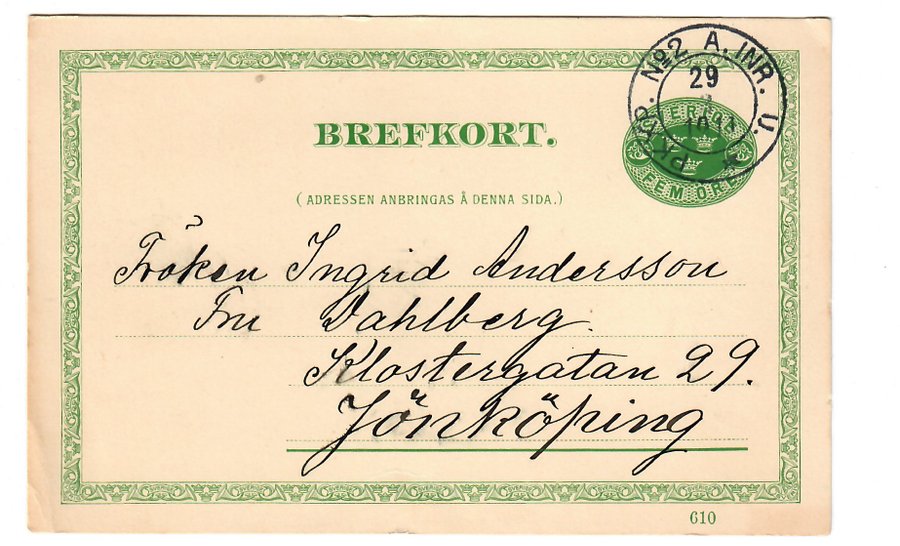 PKXP. No2 A. INR. U.
29
BREFKORT.
FEM ÖRE
(ADRESSEN ANBRINGAS Å DENNA SIDA.)
Fröken Ingrid Andersson
Fru Dahlberg.
Klostergatan 29.
Jönköping
610